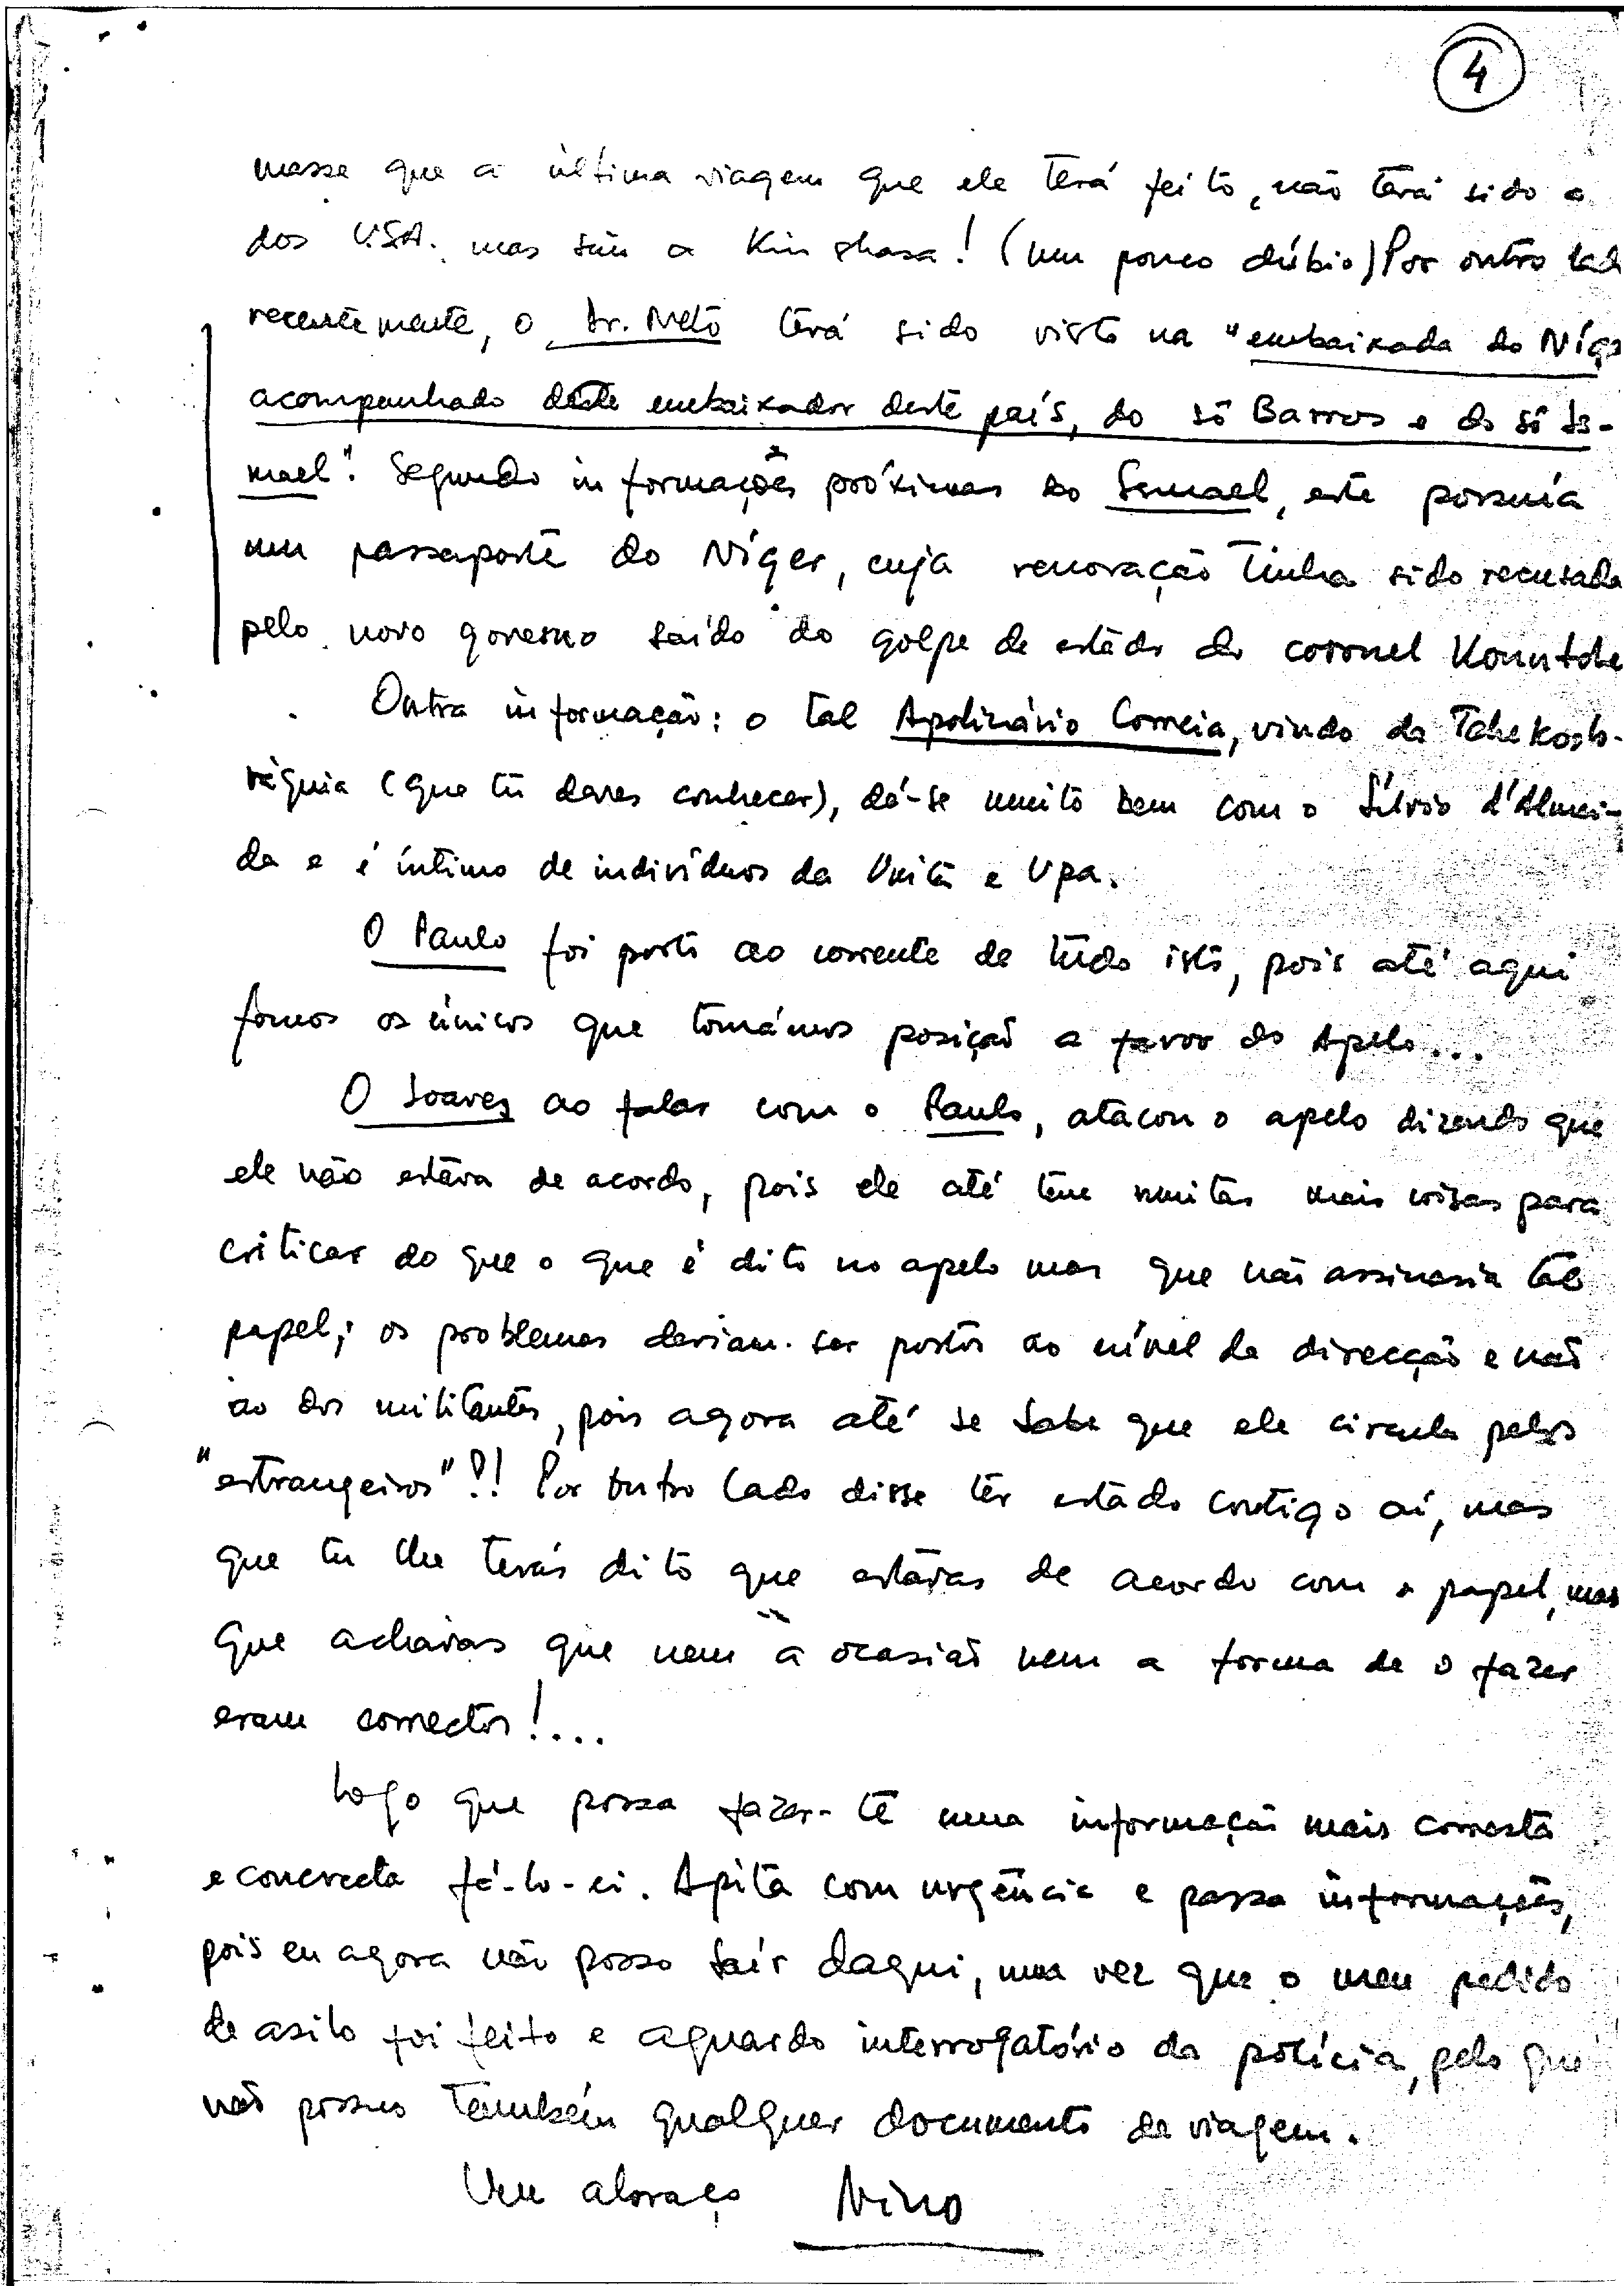 4
masse que a última viagem que ele terá feito, não terá sido a
dos USA. mas sim a Kinshasa! (um pouco dúbio) Por outro lad
recentemente, o Dr. Neto terá sido visto na "embaixada do Níge
acompanhado deste embaixador deste país, do sô Barros e do sô Is-
mael". Segundo informações próximas do Ismael, este possuía
um passaporte do Níger, cuja renovação tinha sido recusada
pelo novo governo saído do golpe de estado do coronel Kountche
Outra informação: o tal Apolinário Correia, vindo da Tchekoslo-
váquia (que tu deves conhecer), dá-se muito bem com o Sílvio d'Almei-
da e é íntimo de indivíduos da Unita e Upa.
O Paulo foi posto ao corrente de tudo isto, pois até aqui
fomos os únicos que tomámos posição a favor do Apelo...
O Soares ao falar com o Paulo, atacou o apelo dizendo que
ele não estava de acordo, pois ele até tem muitas mais coisas para
criticar do que o que é dito no apelo mas que não assinaria tal
papel; os problemas deviam ser postos ao nível da direcção e não
ao dos militantes, pois agora até se sabe que ele circula pelos
"estrangeiros"?! Por outro lado disse ter estado contigo aí, mas
que tu lhe terás dito que estavas de acordo com o papel, mas
que achavas que nem a ocasião nem a forma de o fazer
eram correctos!...
Logo que possa fazer-te uma informação mais correcta
e concreta fá-lo-ei. Apita com urgência e passa informações,
pois eu agora não posso saír daqui, uma vez que o meu pedido
de asilo foi feito e aguardo interrogatório da polícia, pelo que
não possuo também qualquer documento de viagem.
Um abraço Nino